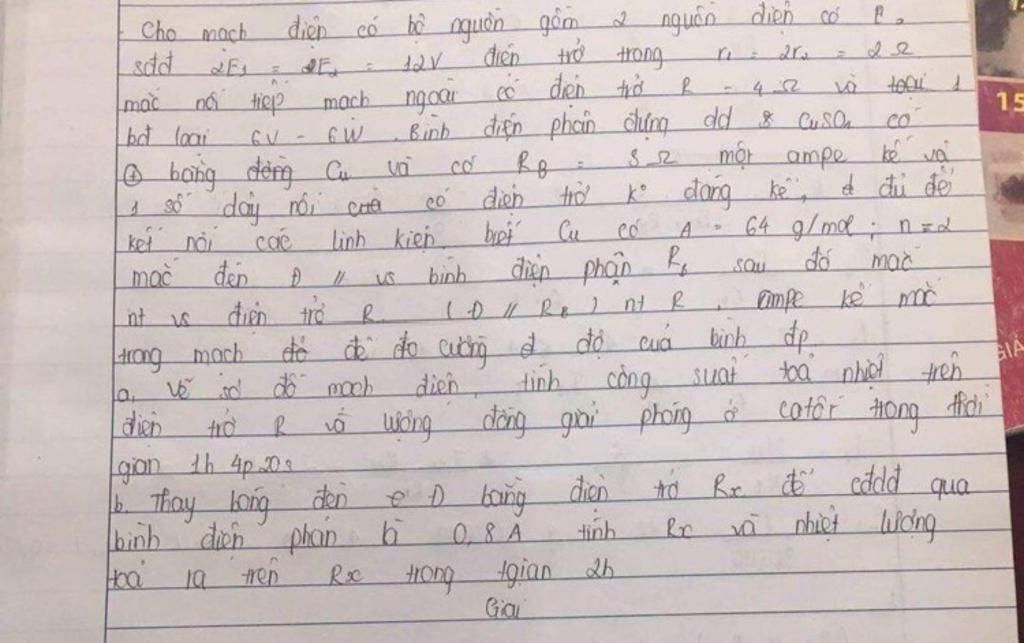 Cho mạch điện có bộ nguồn gồm 2 nguồn điện có P.
sđđ 2E1 = 2E2 = 12V điện trở trong r1 = 2r2 = 2 Ω
mắc nối tiếp mạch ngoài có điện trở R = 4 Ω và 1
bđ loại 6V - 6W. Bình điện phân đựng dd CuSO4 có
⊕ bằng Cu và có RB = 3 Ω một ampe kế và
1 số dây nối có điện trở k° đáng kể, đ đủ để
kết nối các linh kiện. biết Cu có A = 64 g/mol ; n = 2
mắc đèn Đ // vs bình điện phân Rb sau đó mắc
nt vs điện trở R. (Đ // RB) nt R. ampe kế mắc
trong mạch đó để đo cường đ độ của bình đp
a, vẽ sơ đồ mạch điện, tính công suất toả nhiệt trên
điện trở R và lượng đồng giải phóng ở catôt trong thời
gian 1h 4p 20s
b. Thay bóng đèn Đ bằng điện trở Rx để cđdđ qua
bình điện phân là 0,8A tính Rx và nhiệt lượng
toả ra trên Rx trong tgian 2h
Giải
15
GIÁ